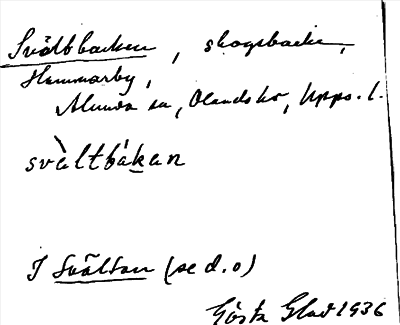 Svältbacken, skogsbacke,
Hammarby,
Alunda sn, Olands hd, Upps. l.
svàltbákan
I Svältan (se d. o)
Gösta Glad 1936